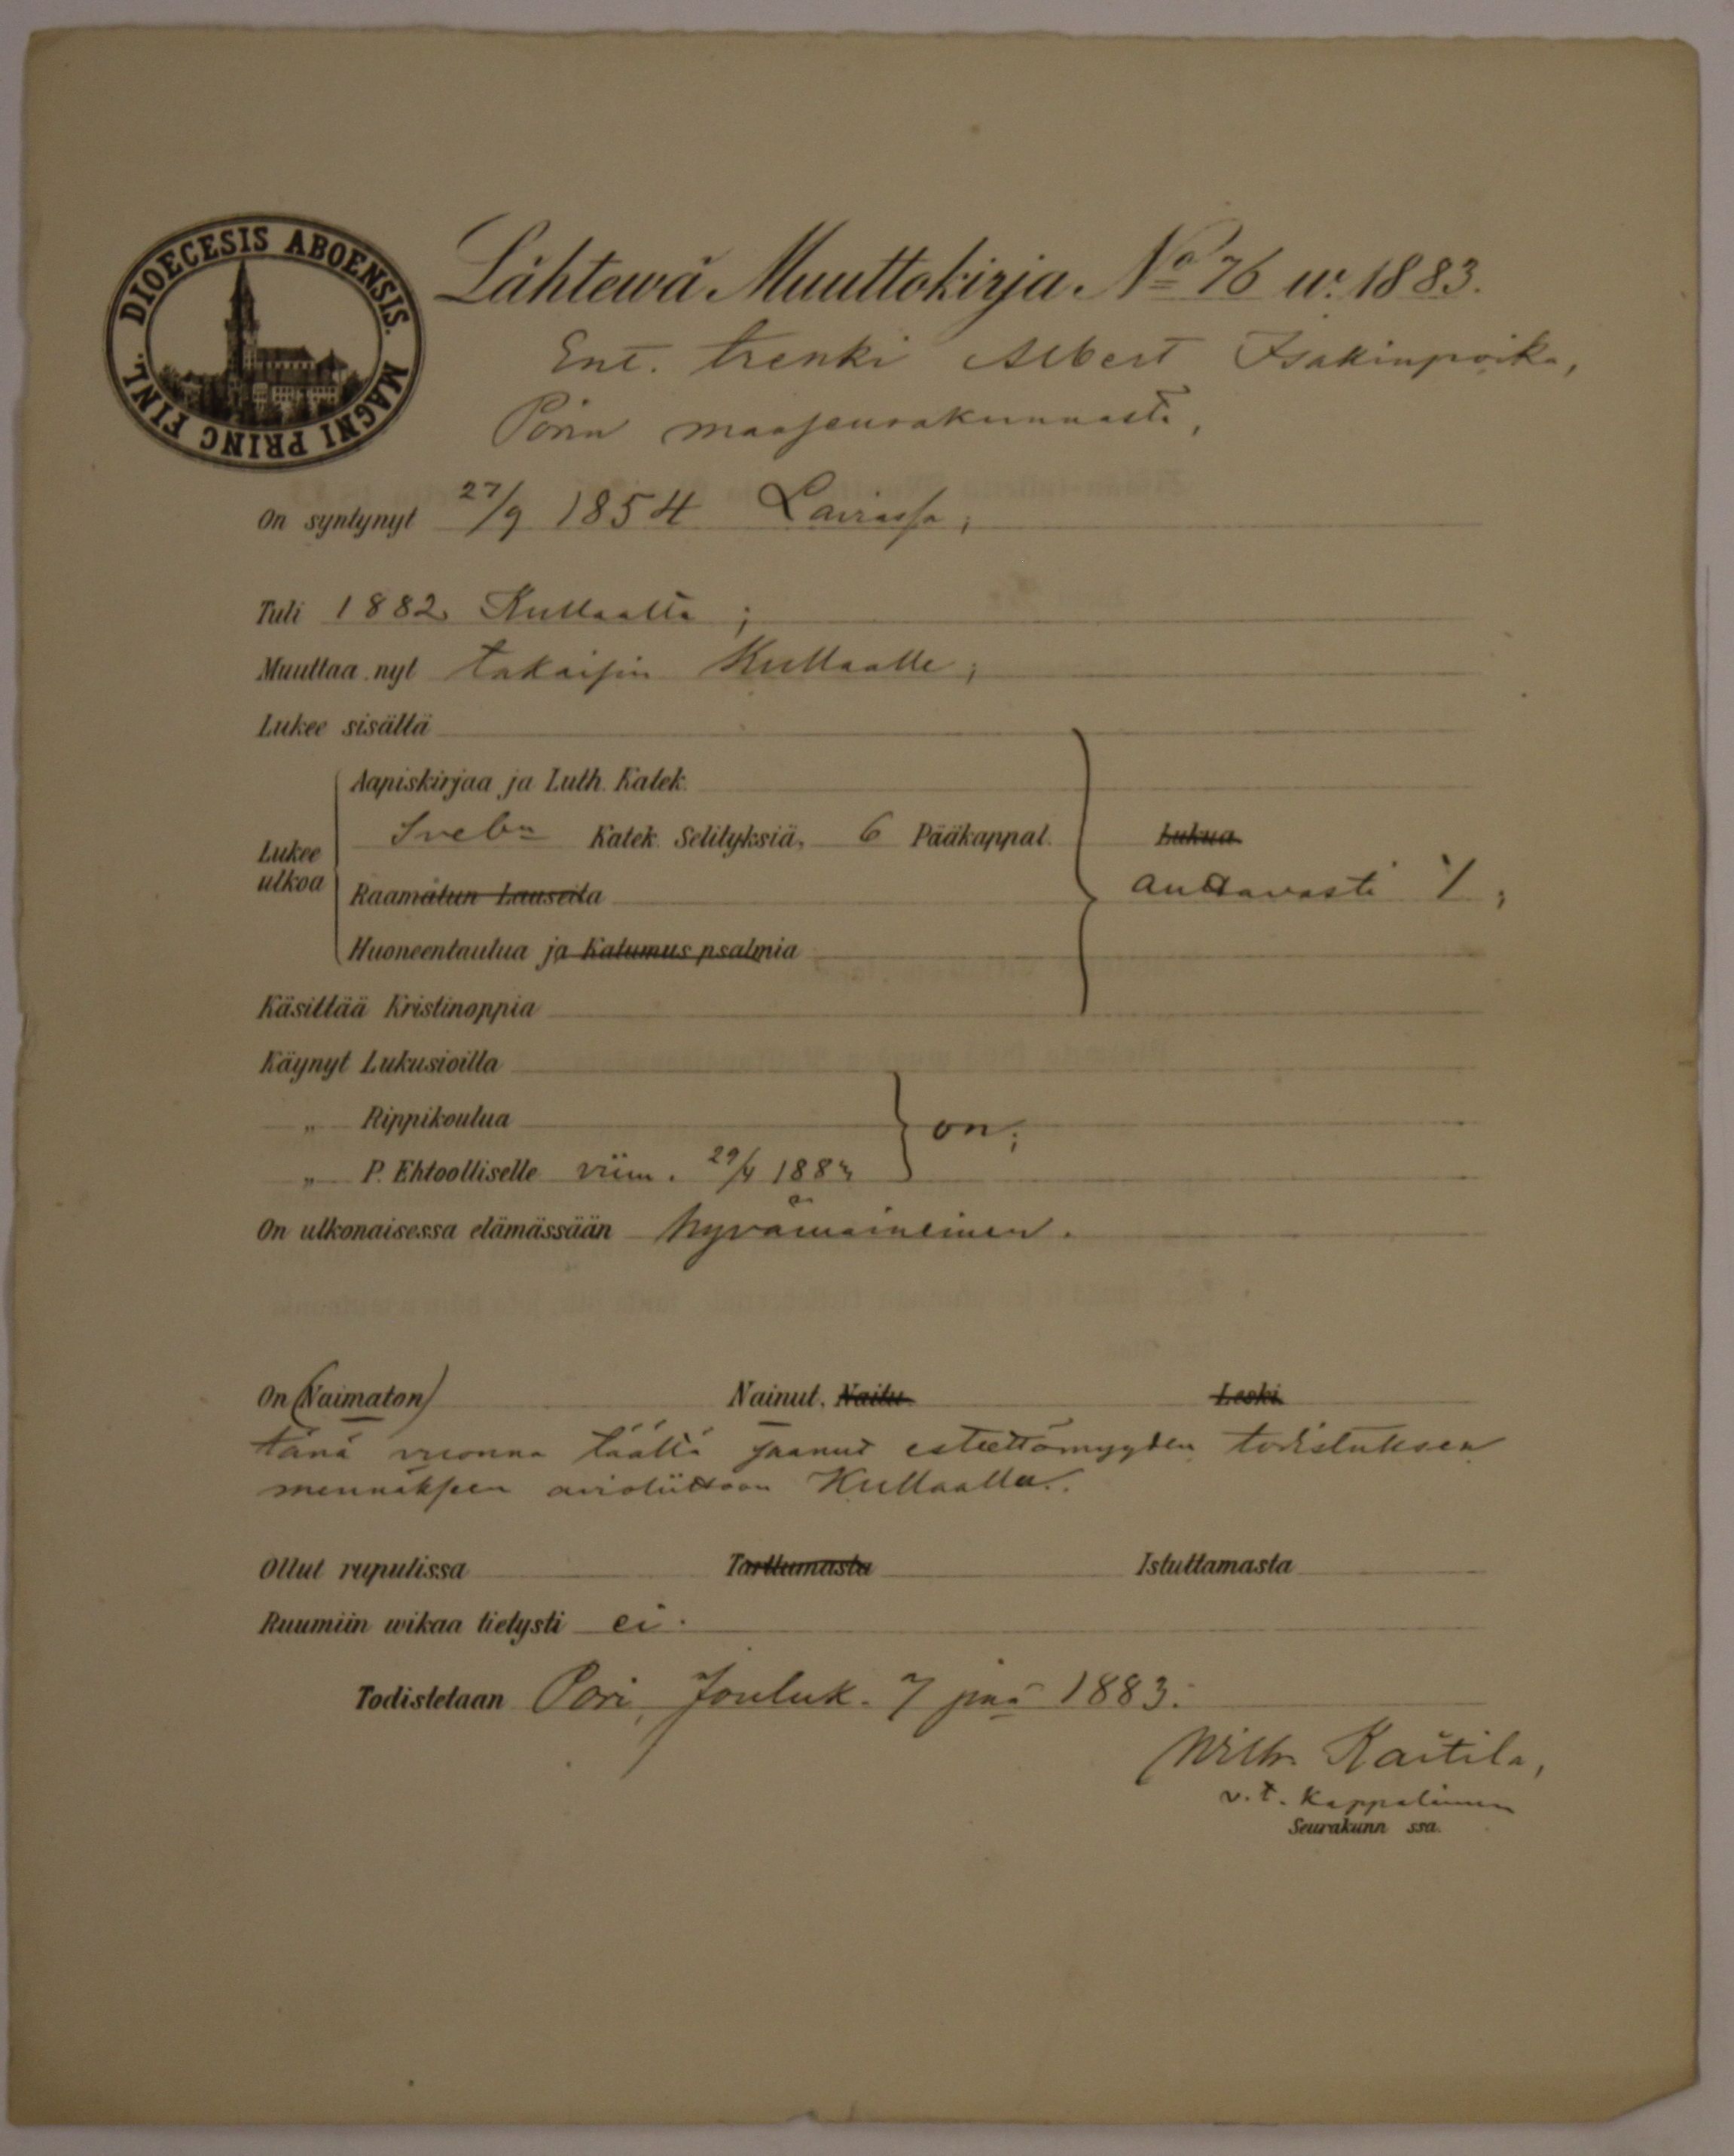 DIOECESIS ABOENSIS. MAGNI PRINC FINL.
Lähtewä Muuttokirja No 76 w. 1883.
Ent. trenki Albert Isakinpoika,
Porin maaseurakunnasta,
On syntynyt 27/9 1854 Laviassa;
Tuli 1882 Kullaalta;
Muuttaa nyt takaisin Kullaalle;
Lukee sisältä
Aapiskirjaa ja Luth. Katek.
Sveb. Katek. Selityksiä, 6 Pääkappal. Lukua
Lukee ulkoa
Raamatun Lauseita auttavasti
Huoneentaulua ja Katumus psalmia
Käsittää Kristinoppia
Käynyt Lukusioilla
„ Rippikoulua on;
„ P. Ehtoolliselle viim. 29/4 1883
On ulkonaisessa elämässään hyvämaineinen.
On (Naimaton) Nainut. Naitu. Leski
tänä vuonna täältä saanut esteettömyyden todistuksen
mennäksen avioliittoon Kullaalla.
Ollut rupulissa Tarttumasta Istuttamasta
Ruumiin wikaa tietysti ei.
Todistetaan Pori, Jouluk. 7 pnä 1883.
Wilh. Kaitila,
v. t. Kappalainen
Seurakunn ssa.